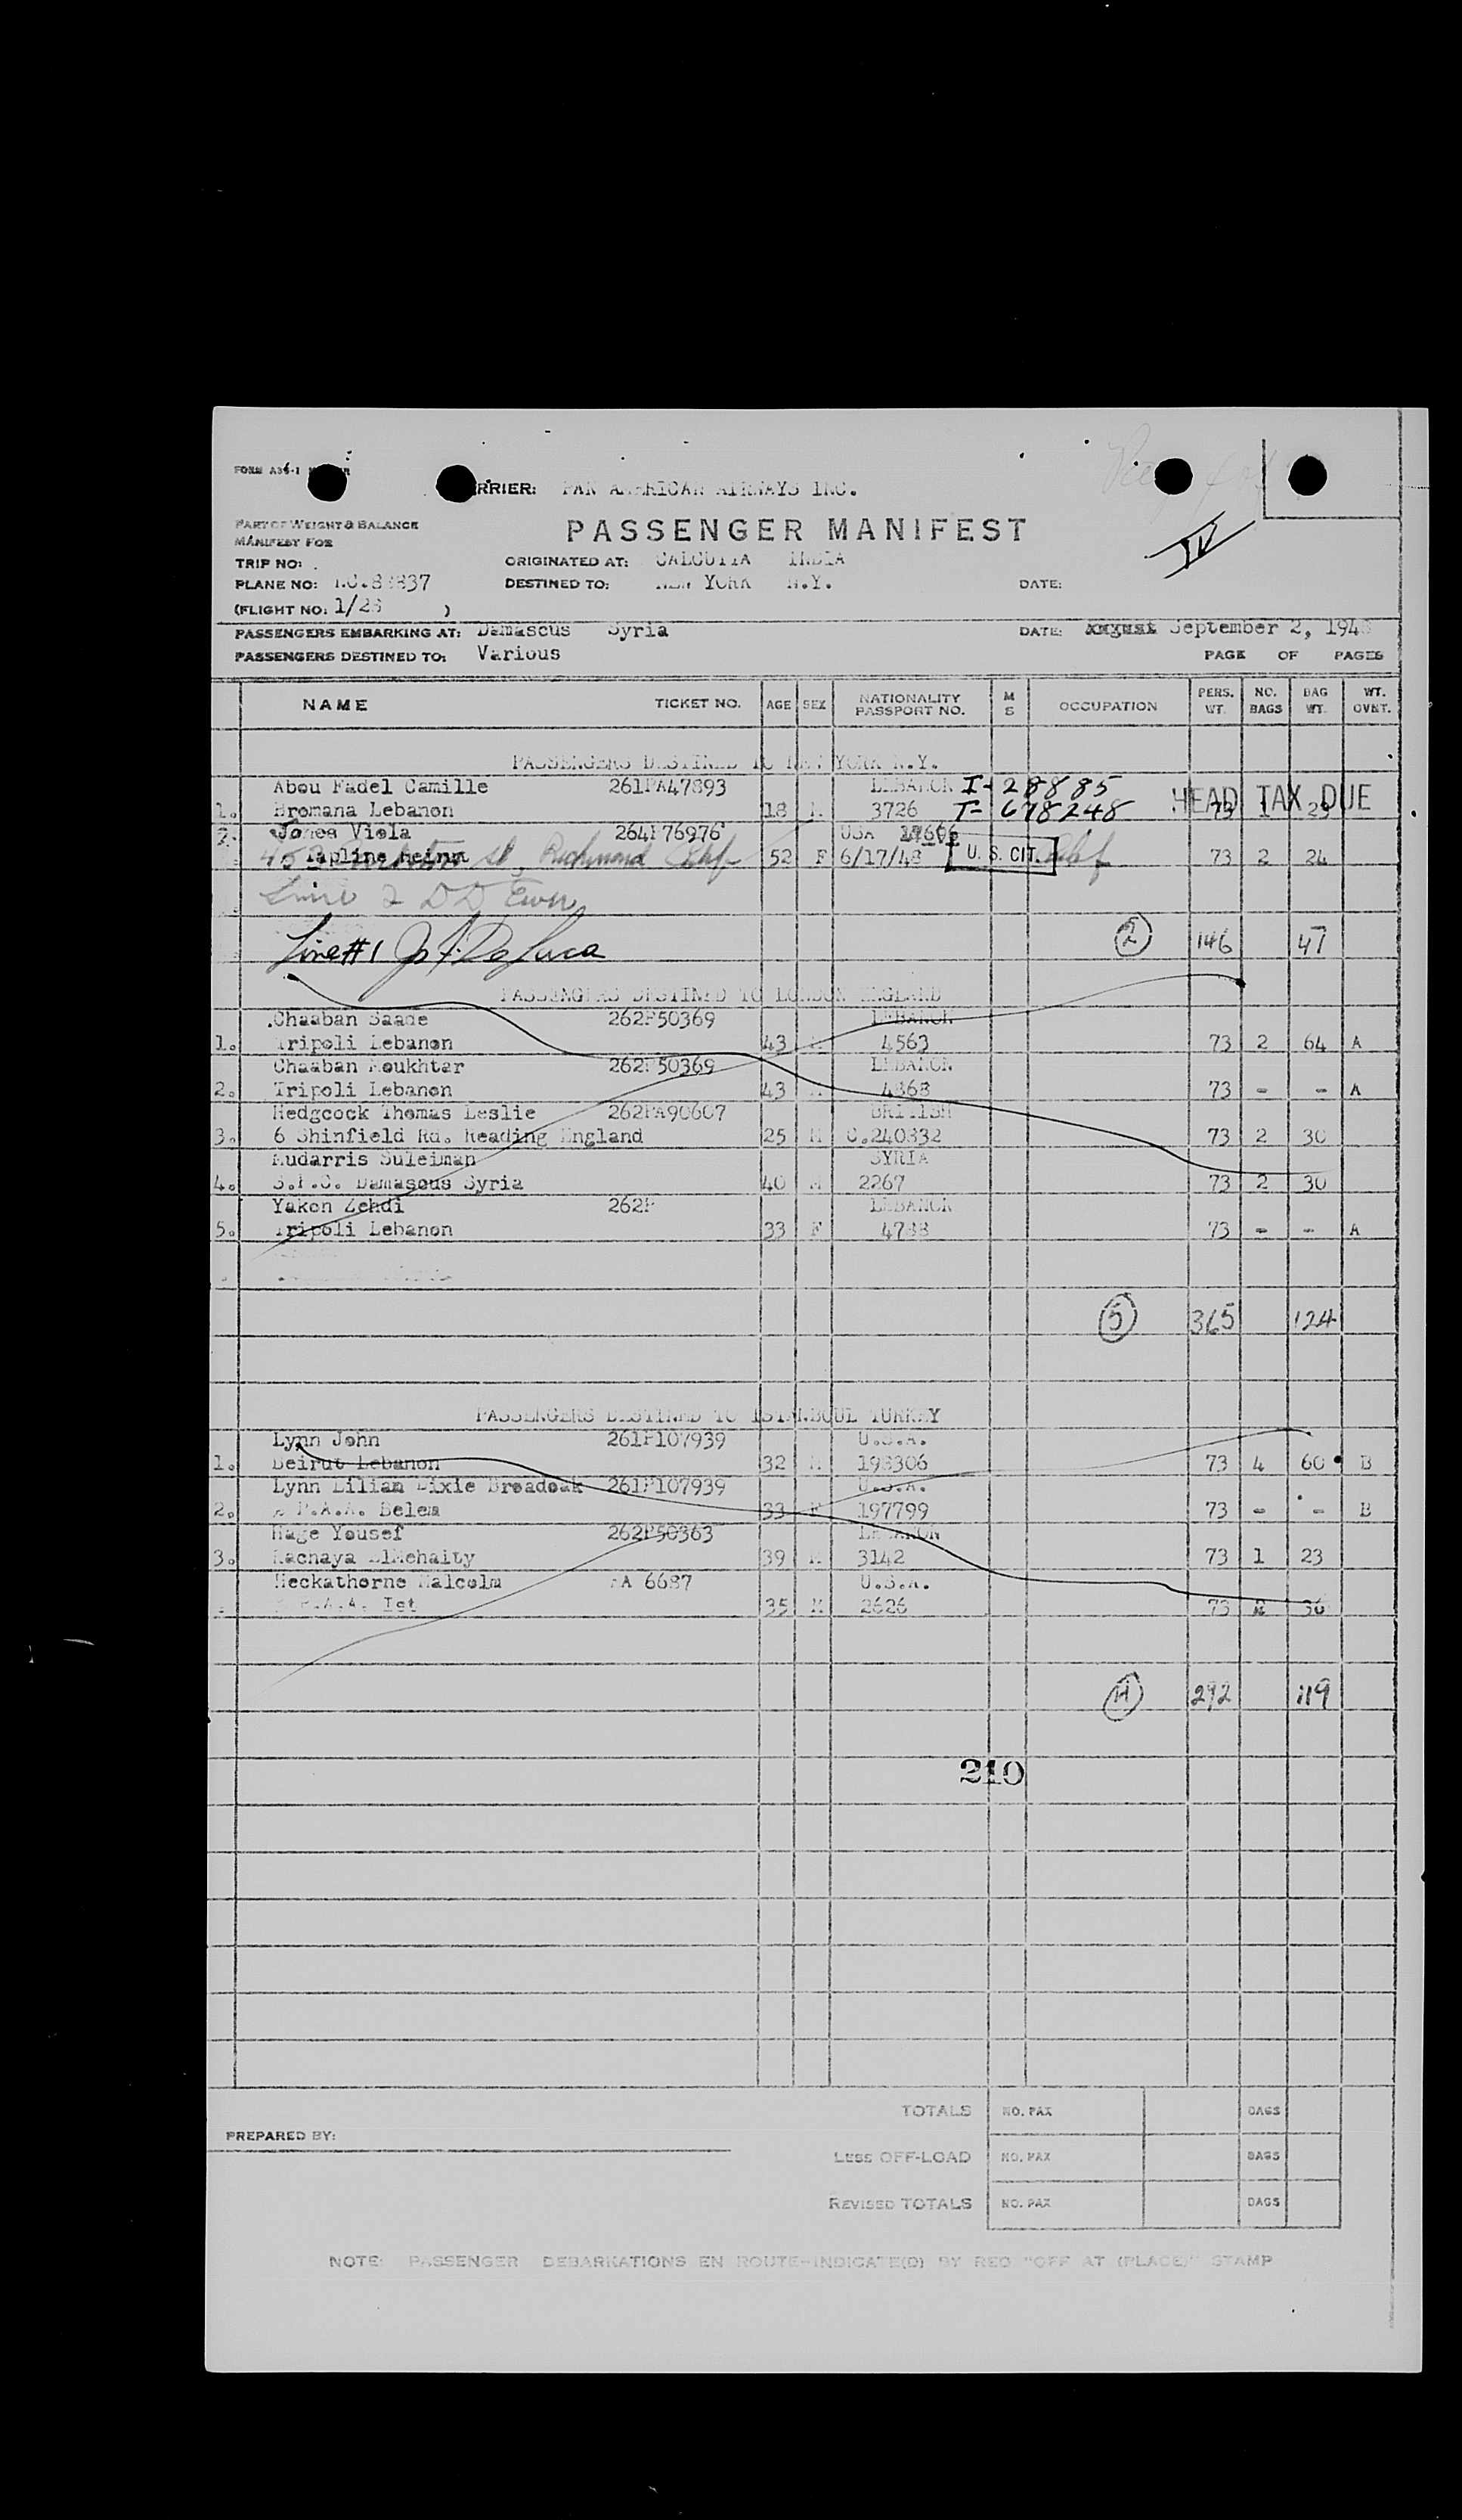 FORM A36-1
CARRIER: PAN AMERICAN AIRWAYS INC.
PART OF WEIGHT & BALANCE
MANIFEST FOR
PASSENGER MANIFEST
IV
TRIP NO:
ORIGINATED AT: CALCUTTA INDIA
PLANE NO: NC.88837
DESTINED TO: NEW YORK N.Y.
DATE:
(FLIGHT NO: 1/26 )
PASSENGERS EMBARKING AT: Damascus Syria
DATE: August September 2, 1948
PASSENGERS DESTINED TO: Various
PAGE OF PAGES
NAME TICKET NO. AGE SEX NATIONALITY PASSPORT NO. M S OCCUPATION PERS. WT. NO. BAGS BAG WT. WT. OVNT.
PASSENGERS DESTINED TO NEW YORK N.Y.
Abou Fadel Camille 261PA47893 LEBANON I-28885
1. Bromana Lebanon 18 M 3726 T-678248 73 1 23 HEAD TAX DUE
2. Jones Viola 264P76976 USA
Tapline 52 F 6/17/48 U. S. CIT. 73 2 24
Richmond Calif
Line 2 DD Ewen
Line #1 Jo F. DeLuca 2 146 47
PASSENGERS DESTINED TO LONDON ENGLAND
Chaaban Saade 262P50369 LEBANON
1. Tripoli Lebanon 43 M 4563 73 2 64 A
Chaaban Moukhtar 262P50369 LEBANON
2. Tripoli Lebanon 43 M 4868 73 - - A
Hedgcock Thomas Leslie 262PA90607 BRITISH
3. 6 Shinfield Rd. Reading England 25 M C.240832 73 2 30
Mudarris Suleiman SYRIA
4. S.P.C. Damascus Syria 40 M 2267 73 2 30
Yakon Zehdi 262P LEBANON
5. Tripoli Lebanon 33 F 4788 73 - - A
5 365 124
PASSENGERS DESTINED TO ISTANBOUL TURKEY
Lynn John 261P107939 U.S.A.
1. Beirut Lebanon 32 M 198306 73 4 60 B
Lynn Lilian Dixie Broadoak 261P107939 U.S.A.
2. P.A.A. Belem 33 F 197799 73 - - B
Hage Yousef 262P50363 LEBANON
3. Rachaya ElMehaity 39 M 3142 73 1 23
Heckathorne Malcolm PA 6687 U.S.A.
P.A.A. Ist 35 M 2626 73 2 36
4 292 119
210
TOTALS NO. PAX BAGS
PREPARED BY:
LESS OFF-LOAD NO. PAX BAGS
REVISED TOTALS NO. PAX BAGS
NOTE: PASSENGER DEBARKATIONS EN ROUTE-INDICATE(D) BY RED "OFF AT (PLACE)" STAMP